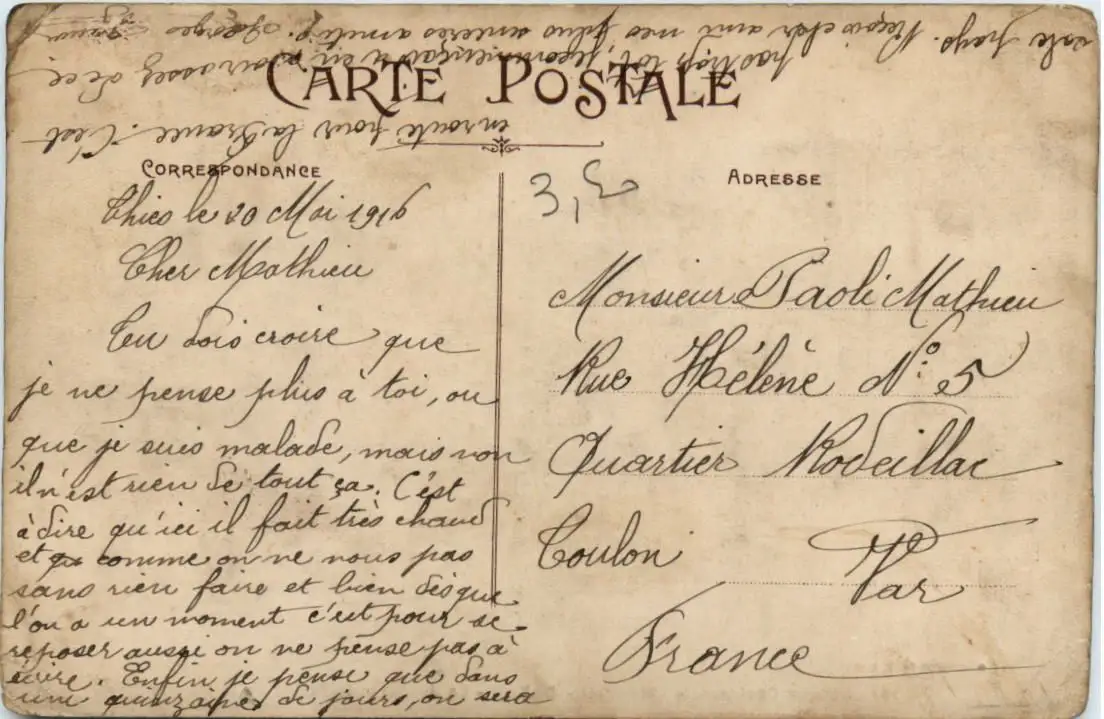 CARTE POSTALE
CORRESPONDANCE
Thies le 20 Mai 1916
Cher Mathieu
Tu dois croire que
je ne pense plus à toi, ou
que je suis malade, mais non
il n'est rien de tout ça. C'est
à dire qu'ici il fait très chaud
et comme on ne nous pas
sans rien faire et bien dès que
l'on a un moment c'est pour se
reposer aussi on ne pense pas à
écrire. Enfin je pense que dans
une quinzaine de jours, on sera
en route pour la France. C'est
pas trop tôt, je commençais à en avoir assez de ce
sale pays. Reçois cher ami mes plus sincères amitiés. Georges
ADRESSE
3,50
Monsieur Paoli Mathieu
Rue Hélène N° 5
Quartier Rodeillac
Toulon
Var
France